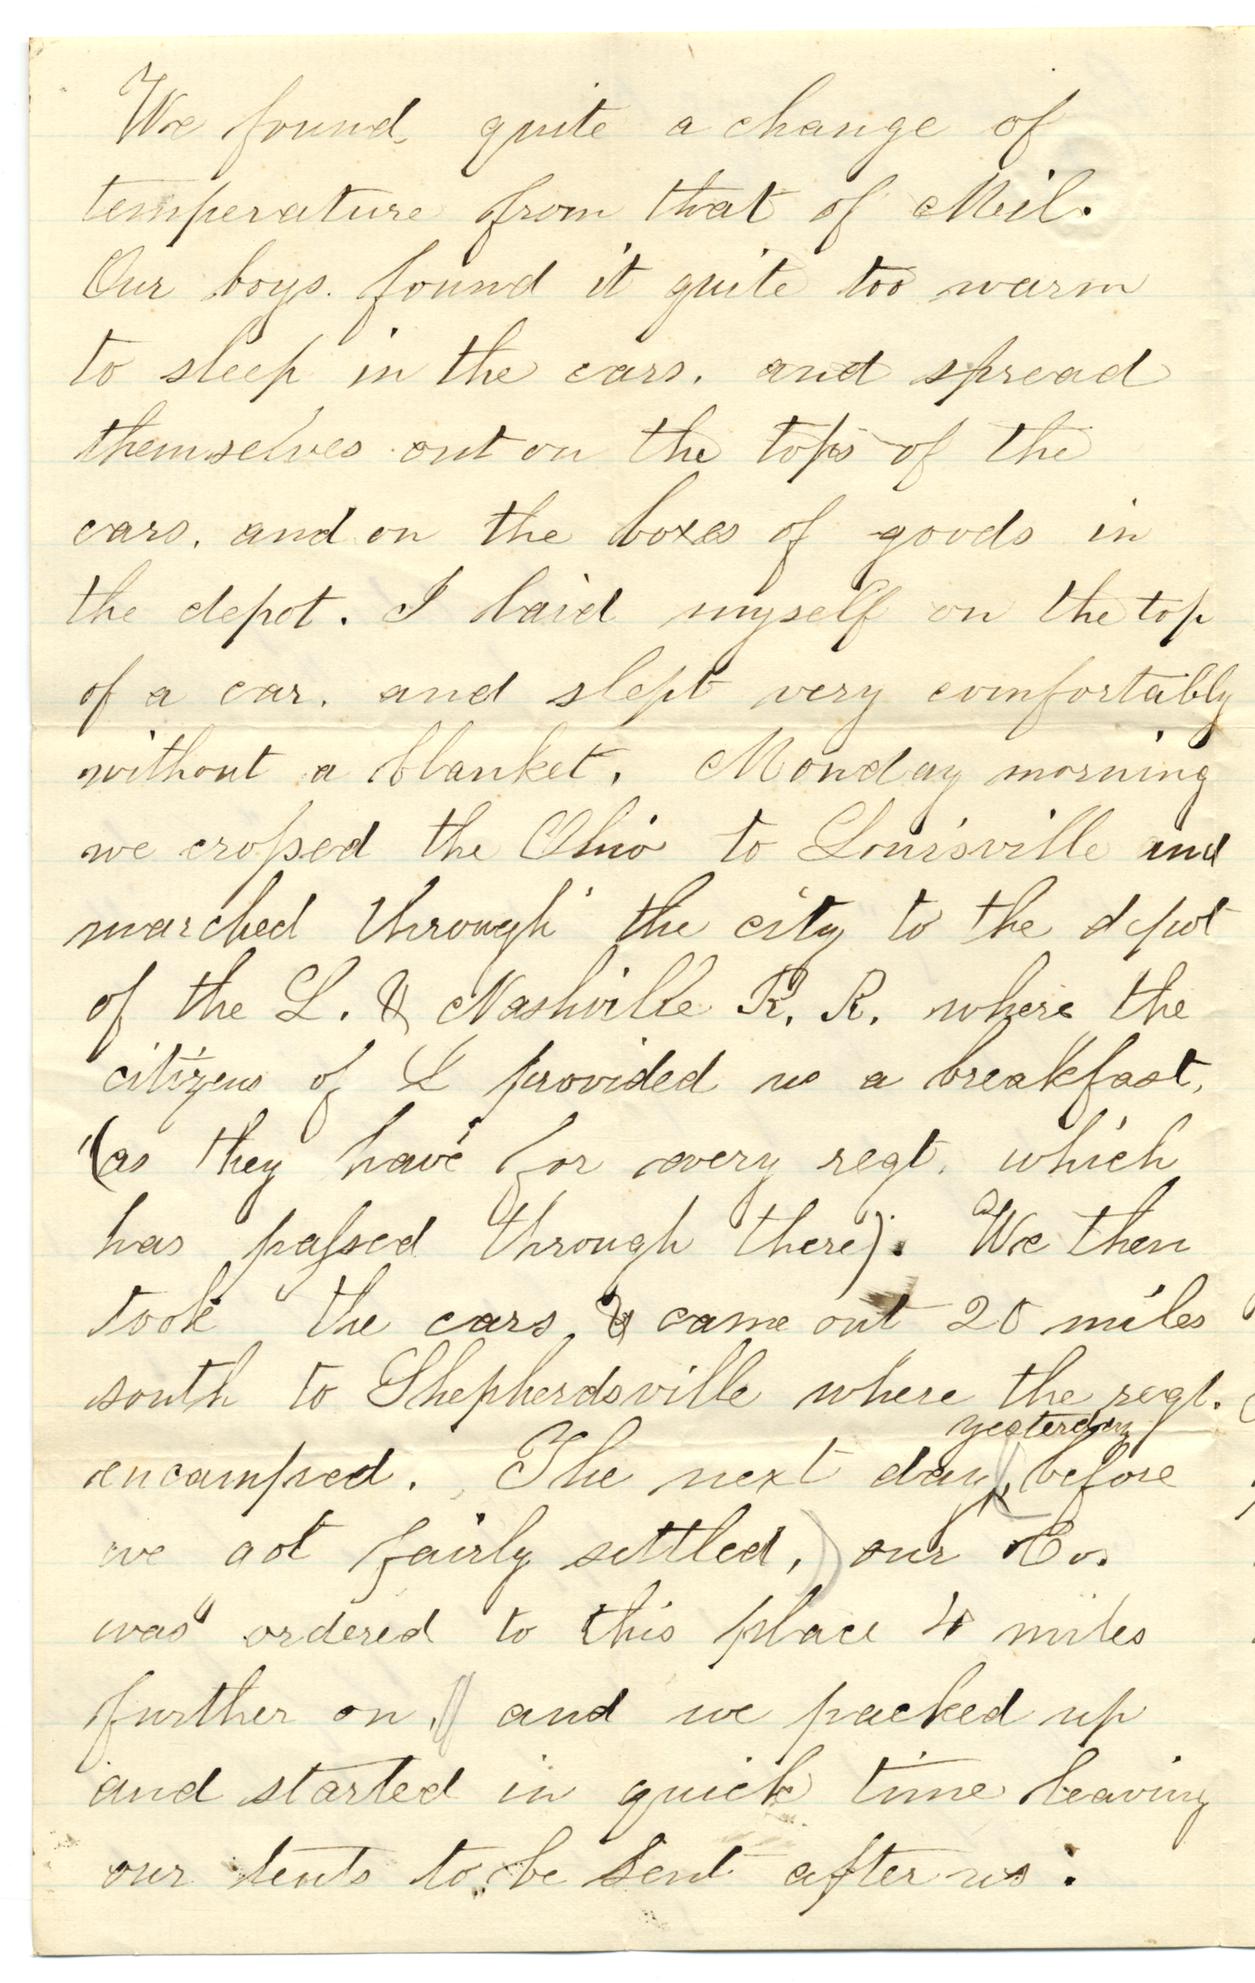 We found quite a change of
temperature from that of Mil.
Our boys. found it quite too warm
to sleep in the cars. and spread
themselves out on the tops of the
cars. and on the boxes of goods in
the depot. I laid myself on the top
of a car. and slept very comfortably
without a blanket. Monday morning
we crossed the Ohio to Louisville and
marched through the city to the depot
of the L. & Nashville R. R. where the
citizens of L provided us a breakfast,
(as they have for every regt. which
has passed through there). We then
took the cars & came out 20 miles
south to Shepherdsville where the regt.
yesterday
encamped. The next day, before
we got fairly settled, our Co.
was ordered to this place 4 miles
further on, and we packed up
and started in quick time leaving
our tents to be sent after us.